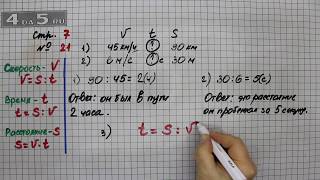 4 da 5.ru
Стр. 7
№ 21
V t S
1) 45 км/ч ? 90 км
2) 6 м/с ? с 30 м
Скорость - V
V = S : t
Время - t
t = S : V
Расстояние - S
S = V · t
1) 90 : 45 = 2 (ч)
Ответ: он был в пути
2 часа.
2) 30 : 6 = 5 (с)
Ответ: это расстояние
он пробежал за 5 секунд.
3) t = S : V